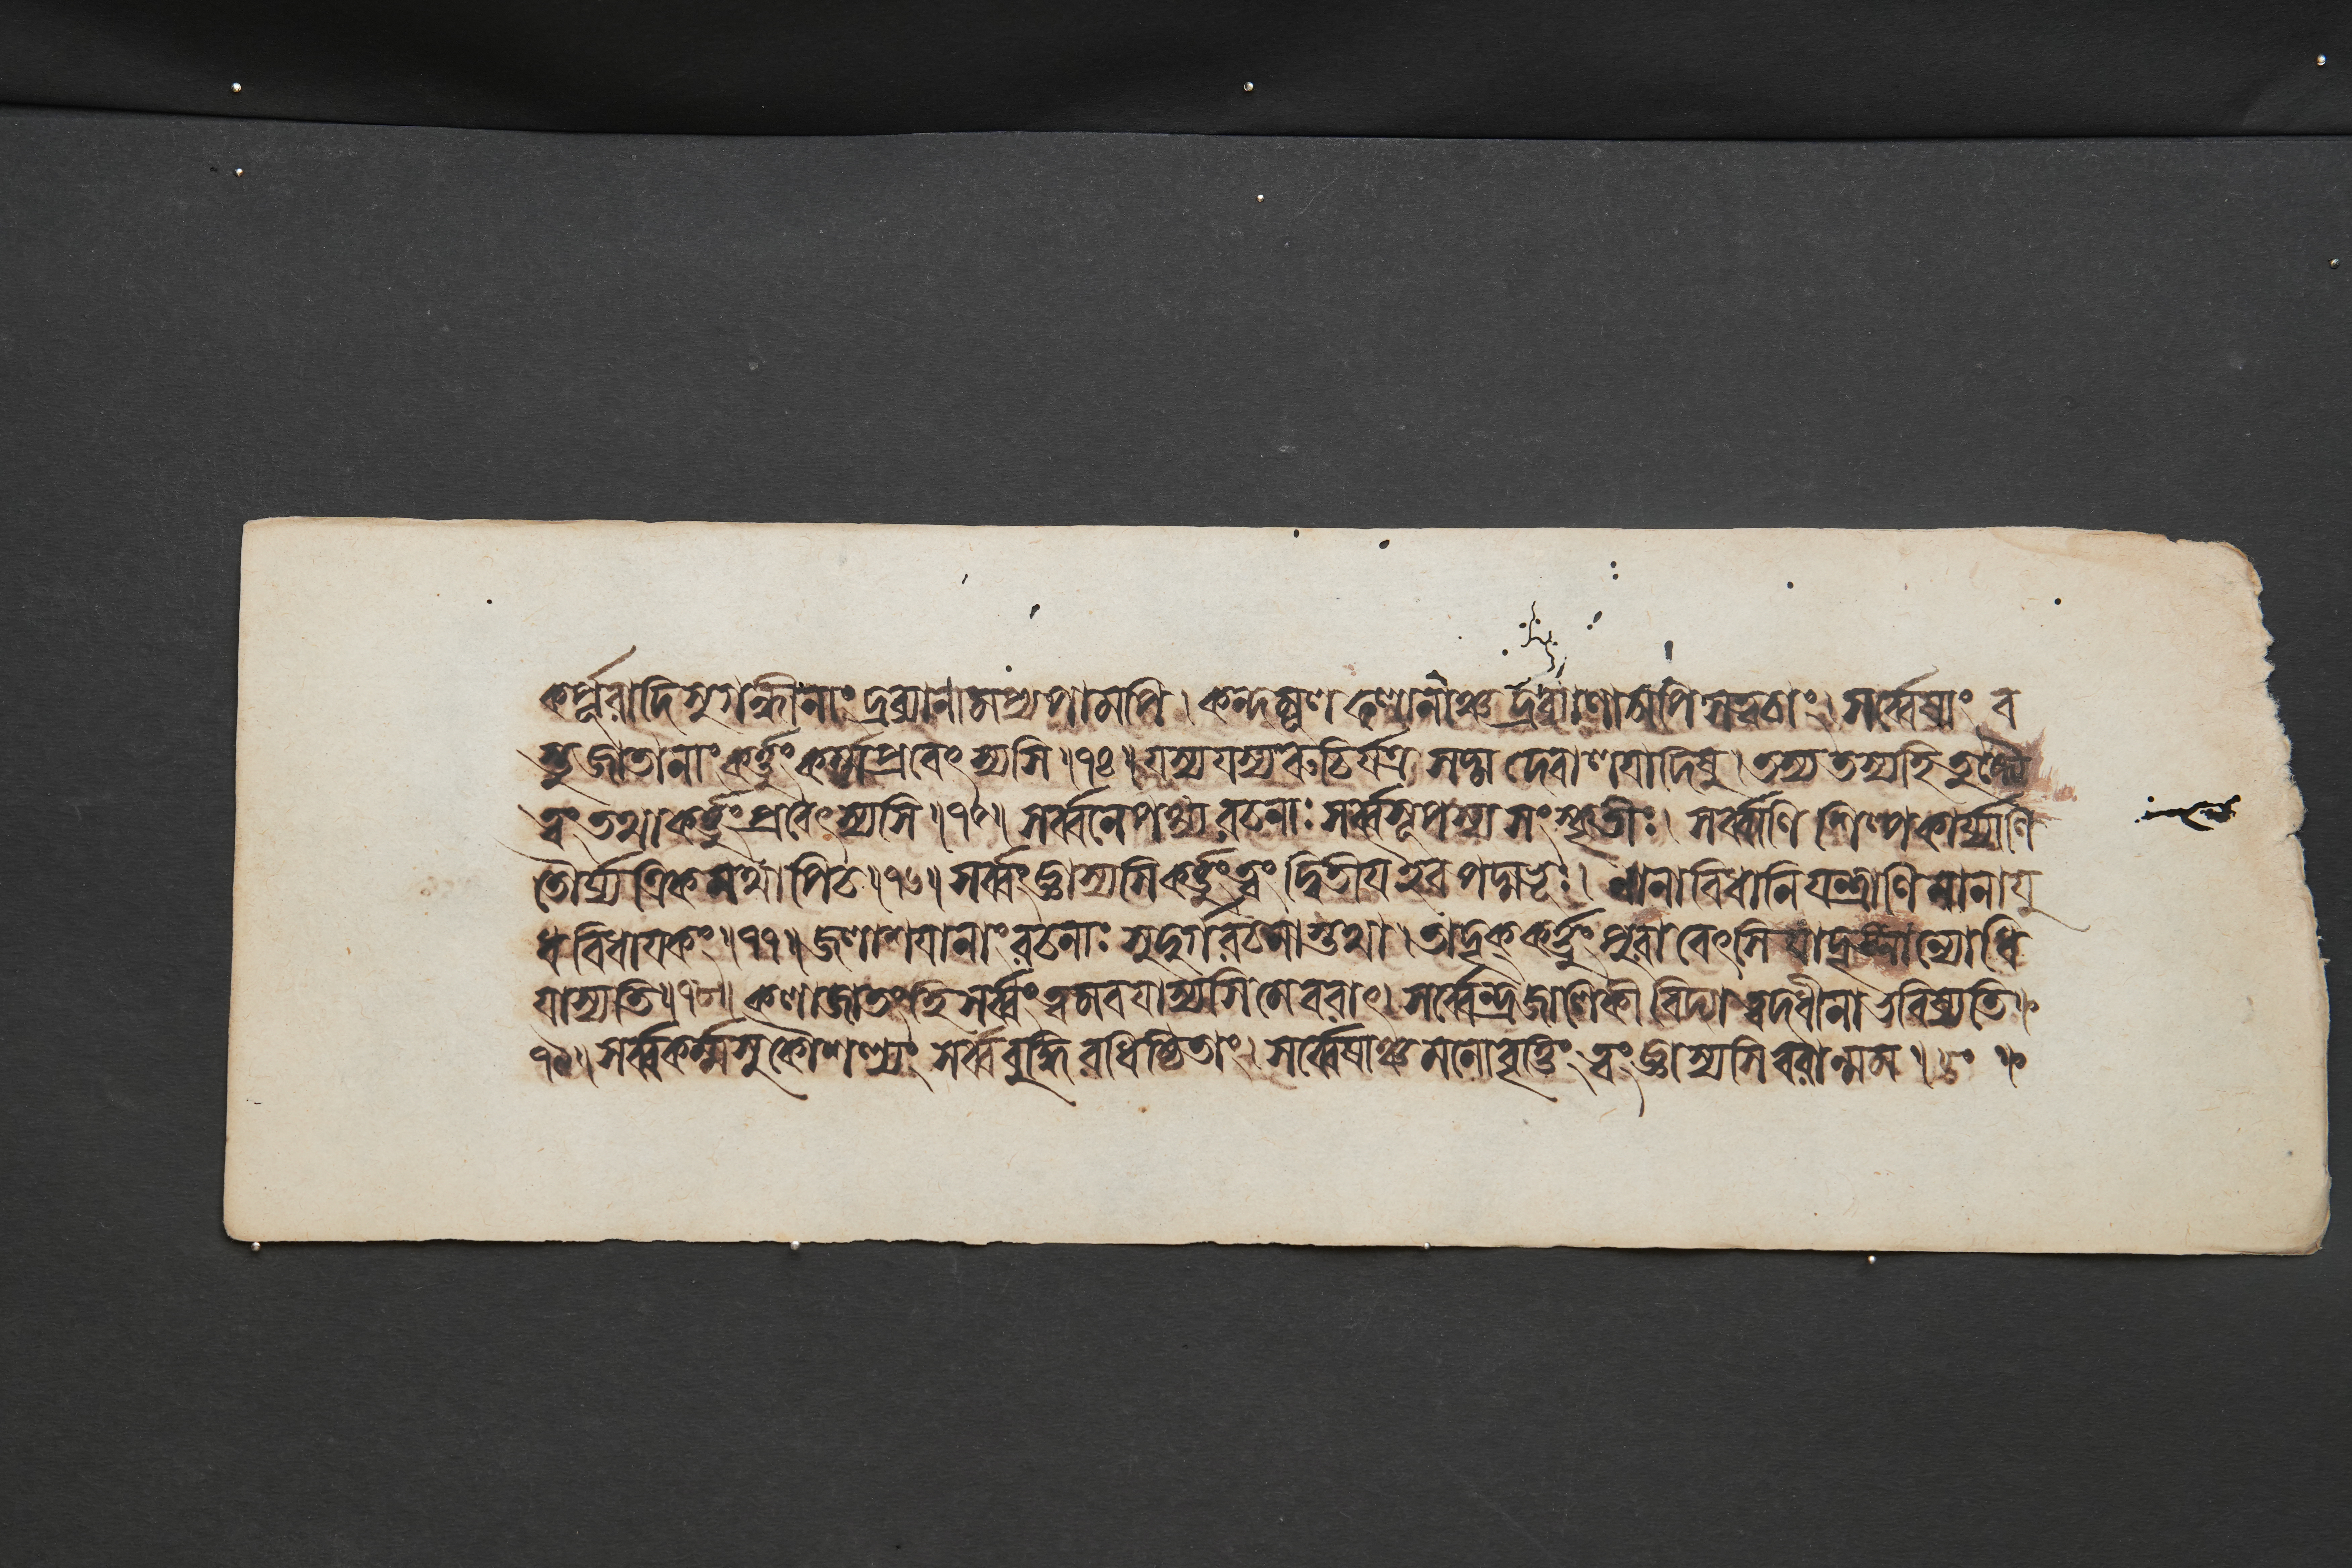 কর্পূরাদিসুগন্ধীনাং দ্রব্যানামপ্যপামপি। কন্দমূলফলানাঞ্চ দ্রব্যাণামপি সত্বচাং। সর্ব্বেষাং ব
স্তুজাতানাং কর্ত্তুং কর্ম্ম প্রবেৎস্যসি॥৭৪॥ যস্য যস্য রুচির্যত্র সদ্ম দেবালয়াদিষু। তস্য তস্যহি তুষ্ট্যৈ
ত্বং তথা কর্ত্তুং প্রবেৎস্যসি॥৭৫॥ সর্ব্বনেপথ্যরচনাঃ সর্ব্বসূপস্য সংস্কৃতীঃ। সর্ব্বাণি শিল্পকার্য্যাণি
তৌর্য্যত্রিকমথাপিচ॥৭৬॥ সর্ব্বং জ্ঞাস্যসি কর্ত্তুং ত্বং দ্বিতীয় ইব পদ্মভূঃ। নানাবিধানি যন্ত্রাণি নানায়ু
ধবিধায়কং॥৭৭॥ জলাশয়ানাং রচনাঃ সুদুর্গরচনাস্তথা। তাদৃক্ কর্ত্তুং পুরা বেৎসি যাদৃঙ্নান্যোধি
যাস্যতি॥৭৮॥ কলাজাতংহি সর্ব্বং ত্বমবয়াস্যসি মে বরাৎ। সর্ব্বেন্দ্রজালিকী বিদ্যা ত্বদধীনা ভবিষ্যতি॥
৭৯॥ সর্ব্বকর্ম্মসু কৌশল্যং সর্ব্ববুদ্ধিবধিষ্ঠিতাং। সর্ব্বেষাঞ্চ মনোবৃত্তিং ত্বং জ্ঞাস্যসি বরান্মম॥